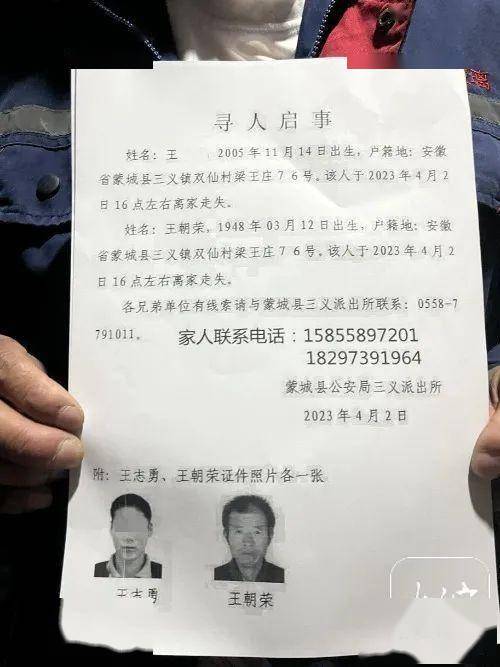 寻人启事
姓名：王 2005年11月14日出生，户籍地：安徽
省蒙城县三义镇双仙村梁王庄76号。该人于2023年4月2
日16点左右离家走失。
姓名：王朝荣，1948年03月12日出生，户籍地：安徽
省蒙城县三义镇双仙村梁王庄76号。该人于2023年4月2
日16点左右离家走失。
各兄弟单位有线索请与蒙城县三义派出所联系：0558-7
791011。 家人联系电话：15855897201
18297391964
蒙城县公安局三义派出所
2023年4月2日
附：王志勇、王朝荣证件照片各一张
王志勇 王朝荣